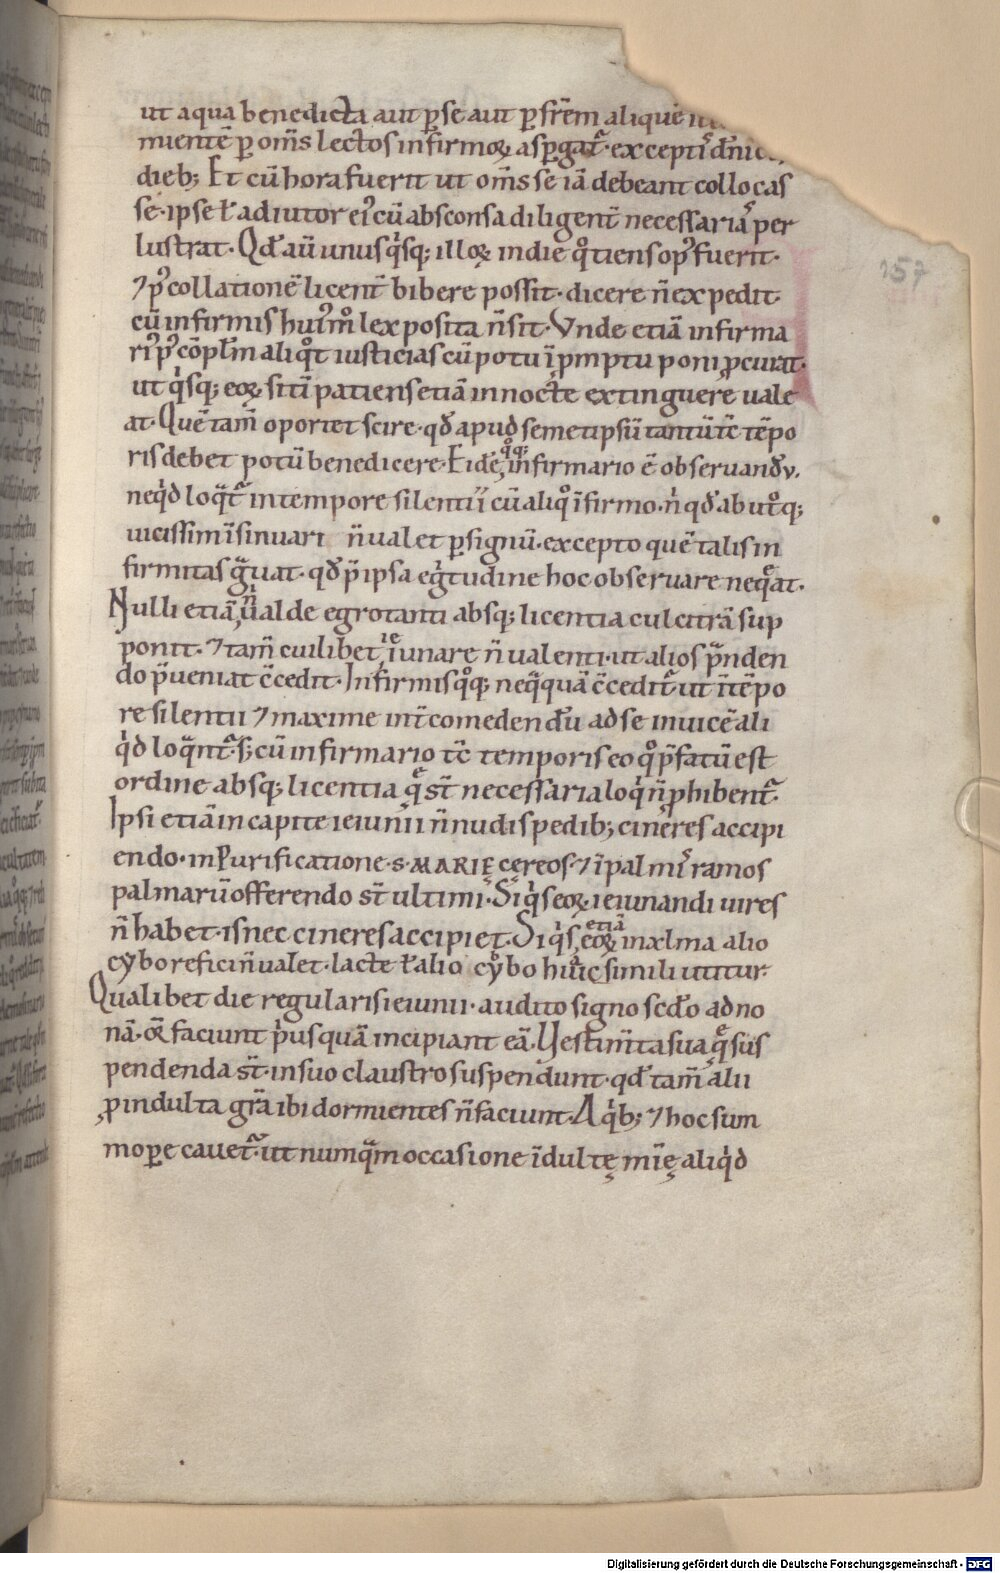 ut aqua benedicta aut ꝑ se aut ꝑ fr̄em aliquē
mientē ꝑ om̄s lectos infirmoꝝ asꝑgat᷒ · exceptis dn̄ic
dieb; Et cū hora fuerit ut om̄s se iā debeant collocas
se · ipse ł adiutor ei᷒ cū absconsa diligent̄ necessaria᷒ per
lustrat · Qd̄ aū unusqͥsq; illoꝝ in die qͦtiens op᷒ fuerit ·
⁊ p᷒ collationē licent̄ bibere possit · dicere n̄ expedit
cū infirmis hui᷒mͦ lex posita n̄ sit · Vnde etiā infirma
ri᷒ p᷒ cōpl̄m aliqͦt iusticias cū potu ī pmptu poni ꝓcurat ·
ut qͥsq; eoꝝ sitī patiens etiā in nocte extinguere uale
at · Quē tam̄ oportet scire · qd̄ apud semetipsū tantū tc̄ tēpo
ris debet potū benedicere · Eidē qͦq; infirmario ē obseruandū ·
neqͥd loqͣt᷒ in tempore silentii cū aliqͦ ī firmo · n̄ qd̄ ab utͦq;
uicissim īsinuari n̄ ualet ꝑ signū · excepto quē talis in
firmitas gͣuat · qd̄ p̄ ipsa eg̍tudine hoc obseruare neqͦat ·
Nulli etiā n̄ ualde egrotanti absq; licentia culcitrā sup
ponit · ⁊ tam̄ cuilibet ieiunare n̄ ualenti · ut alios p̄nden
do p̄ueniat c̄cedit · Infirmis qͦq; neqͣquā c̄cedit᷒ ut ī tēpo
re silentii ⁊ maxime int̄ comedendū ad se inuicē ali
qͥd loqͣnt᷒ · s; cū infirmario tc̄ temporis eo qͦ p̄fatū est
ordine absq; licentia qͤ st̄ necessaria loqͥ n̄ ꝓhibent᷒ ·
Ipsi etiā in capite ieiunii n̄ nudis pedib; cineres accipi
endo · in Purificatione · S · MARIĘ cereos · ⁊ ī palmis ramos
palmarū offerendo st̄ ultimi · Si qͥs eoꝝ ieiunandi uires
n̄ habet · is nec cineres accipiet · Si qͥs etiā eoꝝ in xlma alio
cybo refici n̄ ualet · lacte ł alio cybo huic simili utitur ·
Qualibet die regularis ieiunii · audito signo scd̄o ad no
nā · or̄ faciunt pͥusquā incipiant eā · Vestim̄ta sua qͤ sus
pendenda st̄ · in suo claustro suspendunt · qd̄ tam̄ alii
ꝓ indulta gr̄a ibi dormientes n̄ faciunt · A qͥb; ⁊ hoc sum
moꝑe cauet᷒ · ut numqͣm occasione īdultę mīę aliqͥd
157
Digitalisierung gefördert durch die Deutsche Forschungsgemeinschaft - DFG